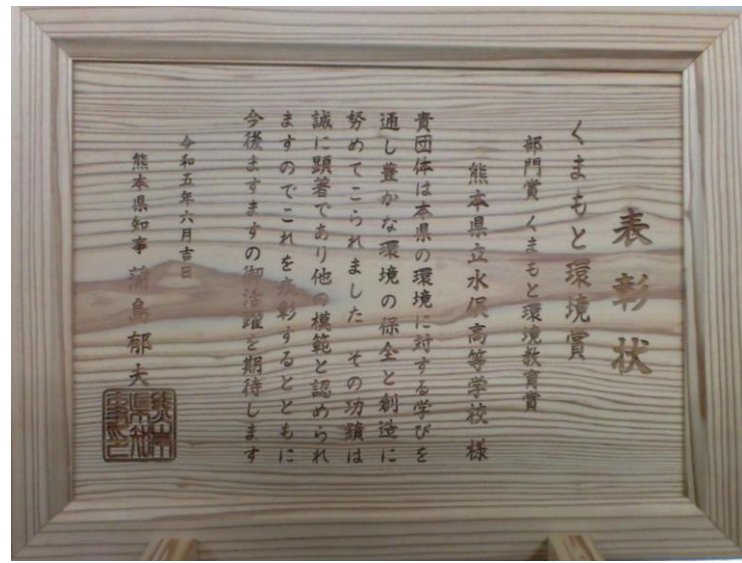 表彰状
くまもと環境賞
部門賞 くまもと環境教育賞
熊本県立水俣高等学校 様
貴団体は本県の環境に対する学びを
通し豊かな環境の保全と創造に
努めてこられました その功績は
誠に顕著であり他の模範と認められ
ますのでこれを表彰するとともに
今後ますますの御活躍を期待します
令和五年六月吉日
熊本県知事 蒲島郁夫